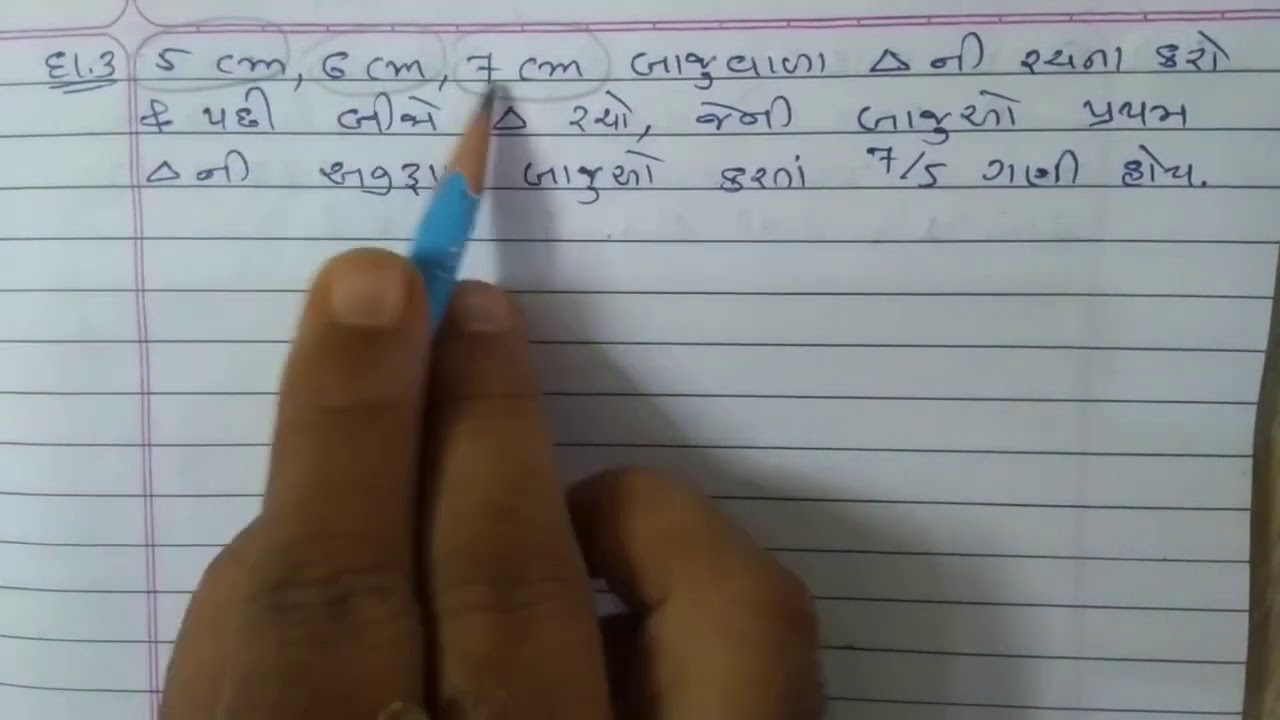 દા.3 5 cm, 6 cm, 7 cm બાજુવાળા △ ની રચના કરો
& પછી બીજો △ રચો, જેની બાજુઓ પ્રથમ
△ ની બાજુઓ કરતાં 7/5 ગણી હોય.